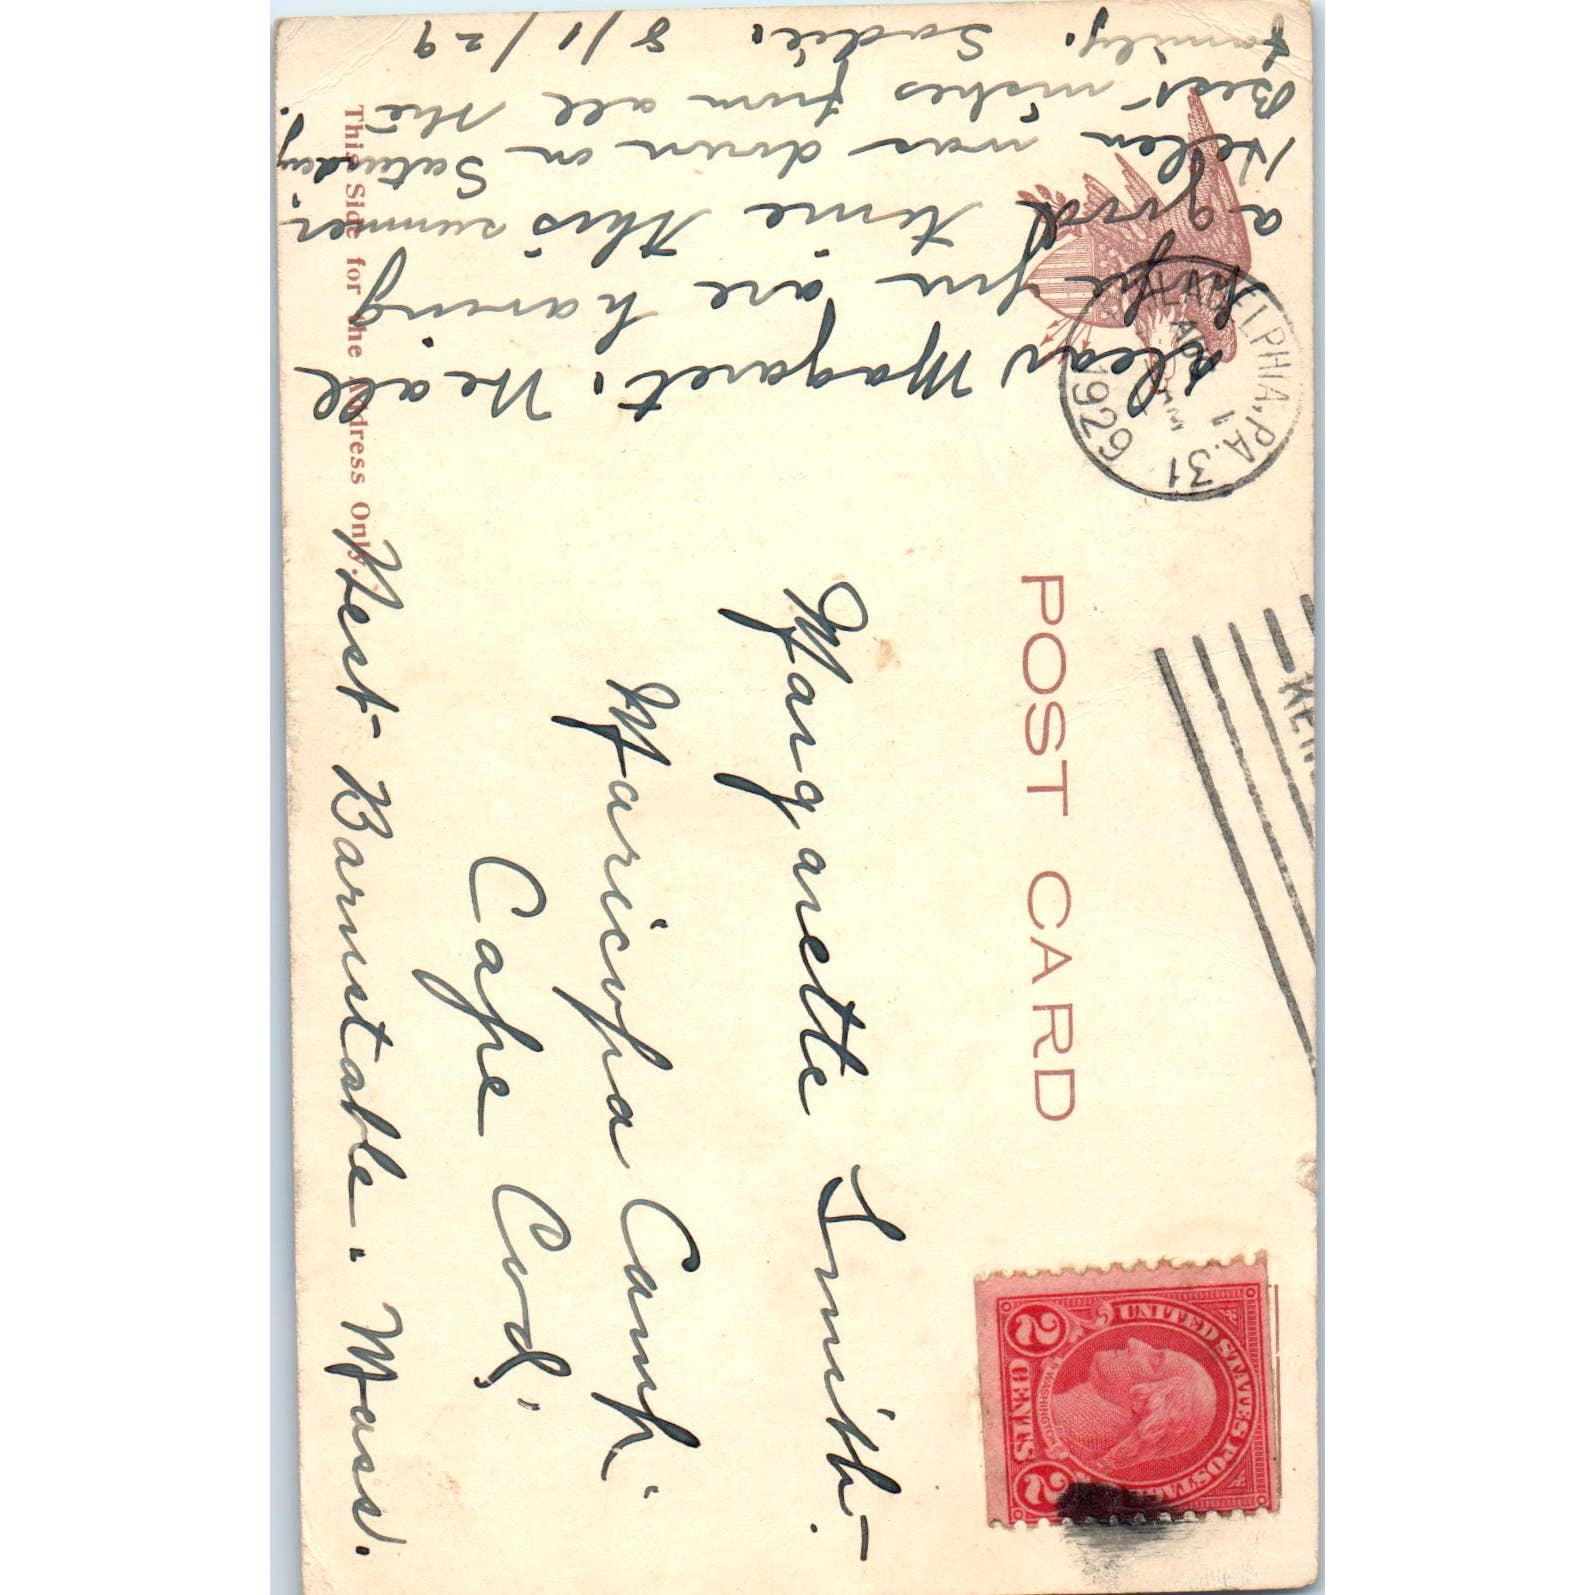 POST CARD
This Side for the Address Only.
PHILADELPHIA, PA. 31
1929
UNITED STATES POSTAGE
WASHINGTON
2 CENTS 2
Dear Margaret: We all
hope you are having
a good time this summer.
Helen was down on Saturday.
Best wishes from all the
family. Sadie. 8/1/29
Margarette Smith.
Maricopa Camp.
Cape Cod,
West Barnstable. Mass.